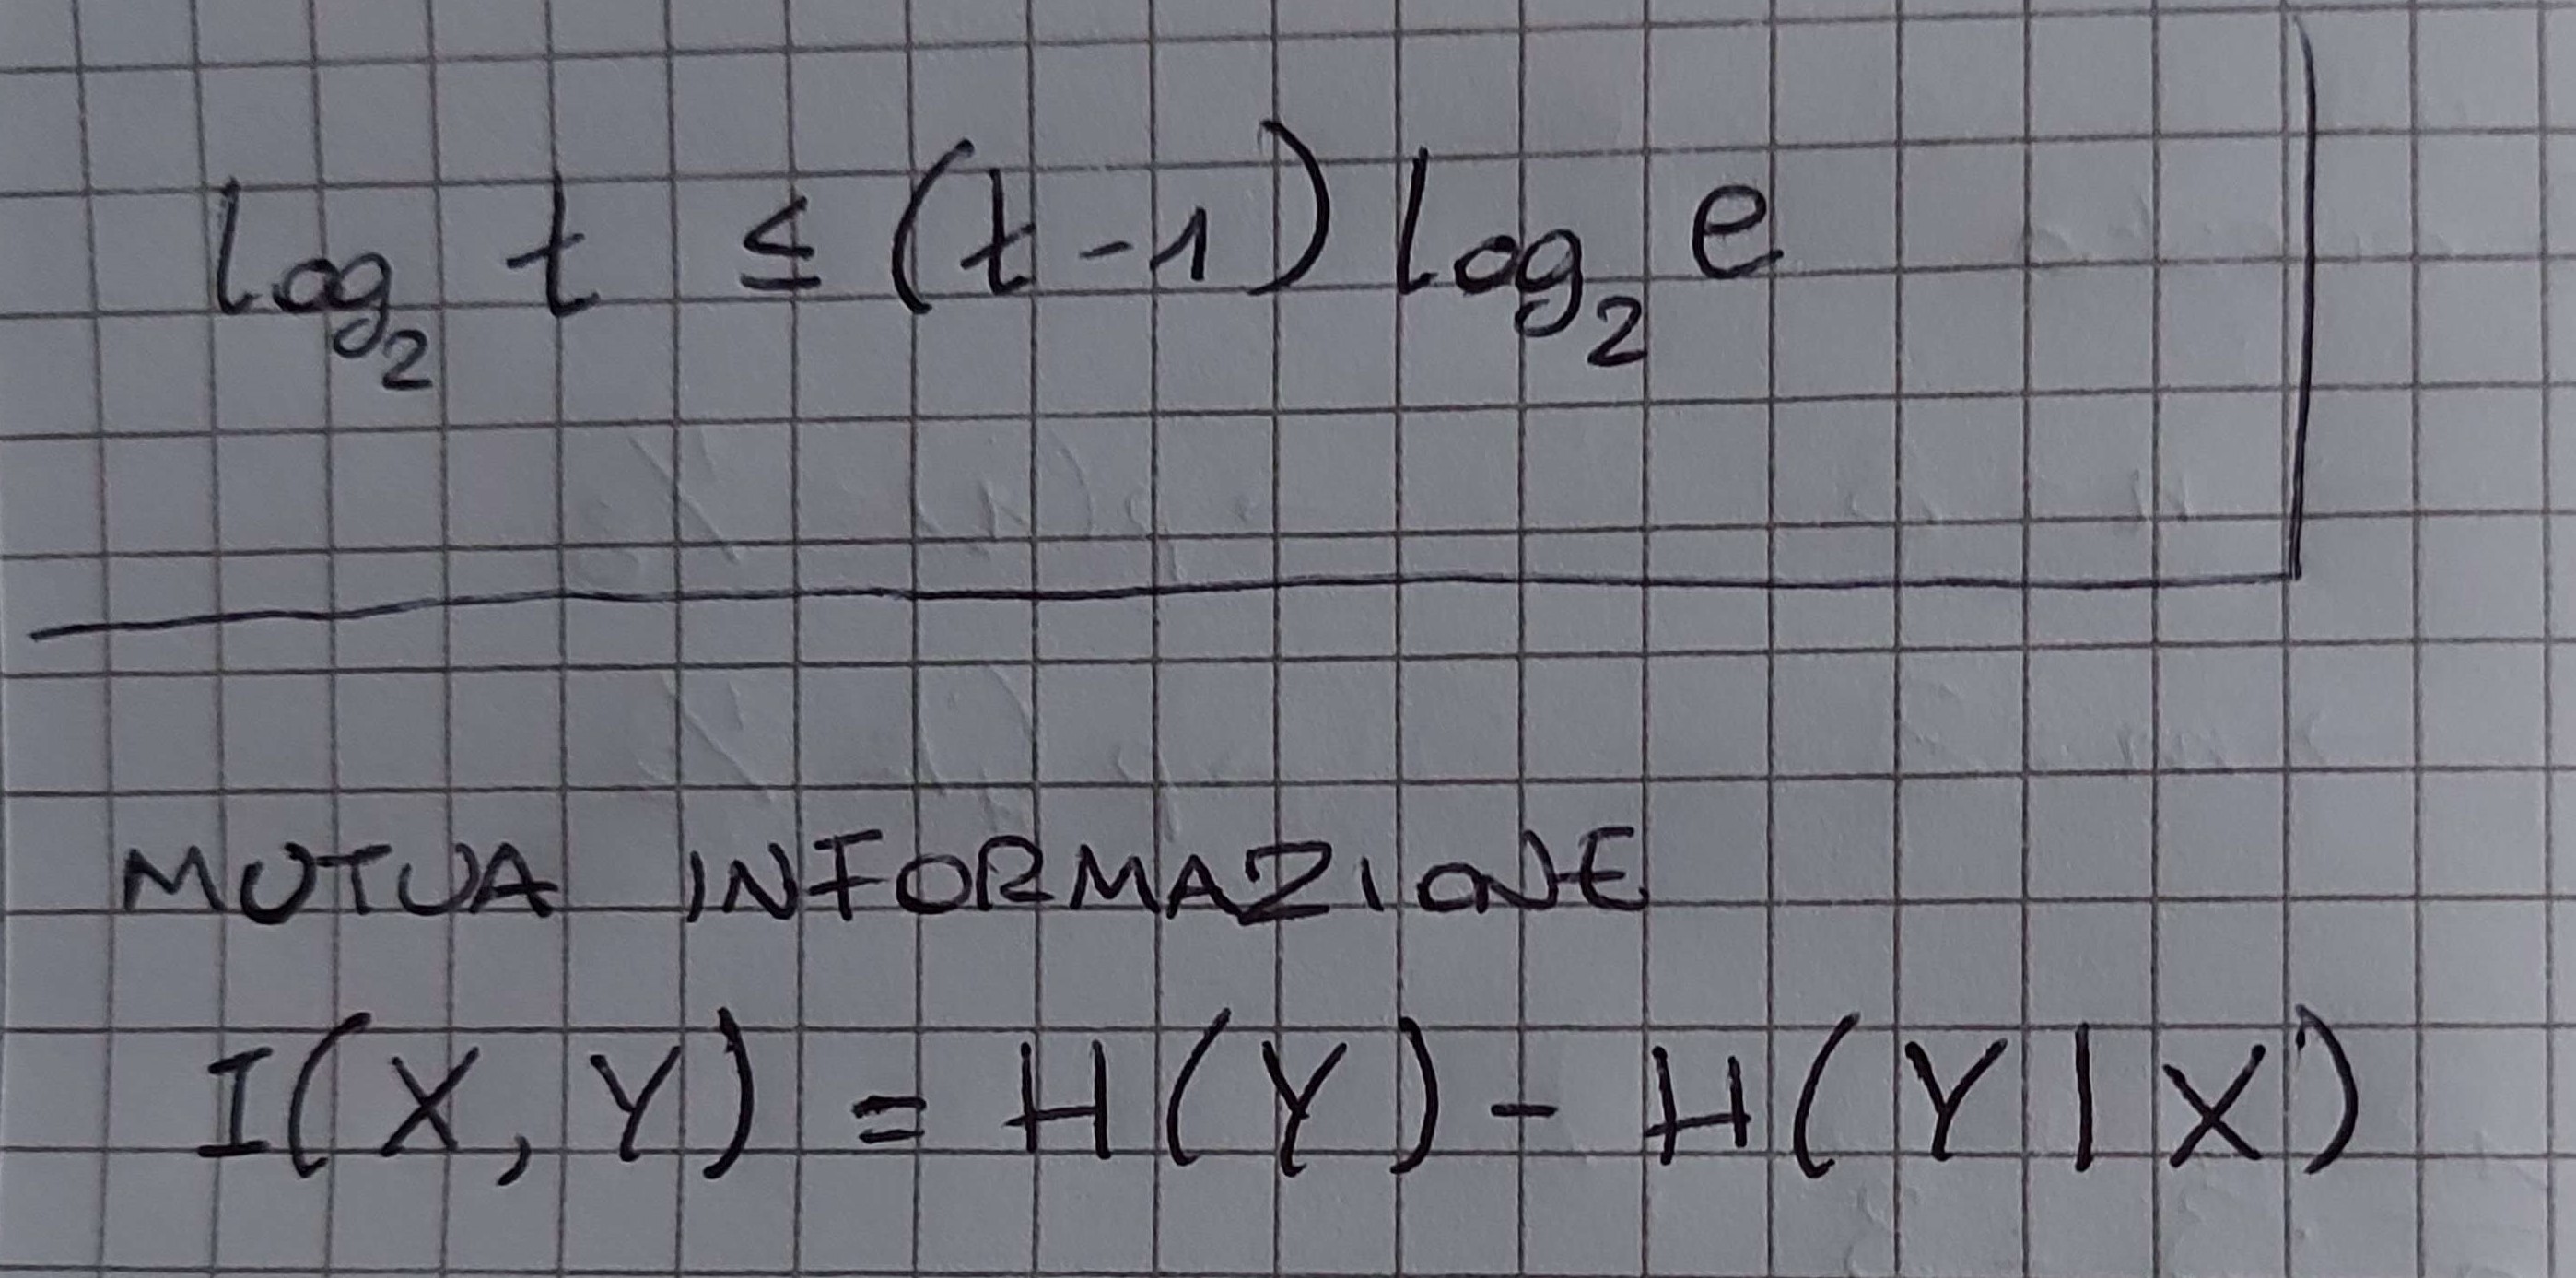 log₂ t ≤ (t-1) log₂ e
MUTUA INFORMAZIONE
I(X, Y) = H(Y) - H(Y|X)